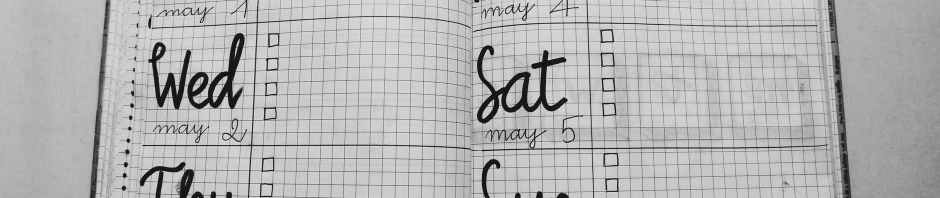 may 1
Wed
may 2
Thu
may 4
Sat
may 5
Sun